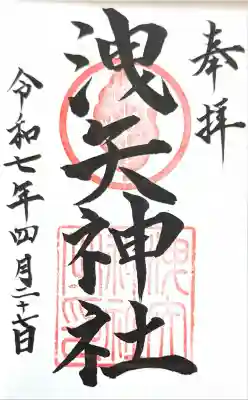 奉拝
洩矢神社
令和七年四月二十七日